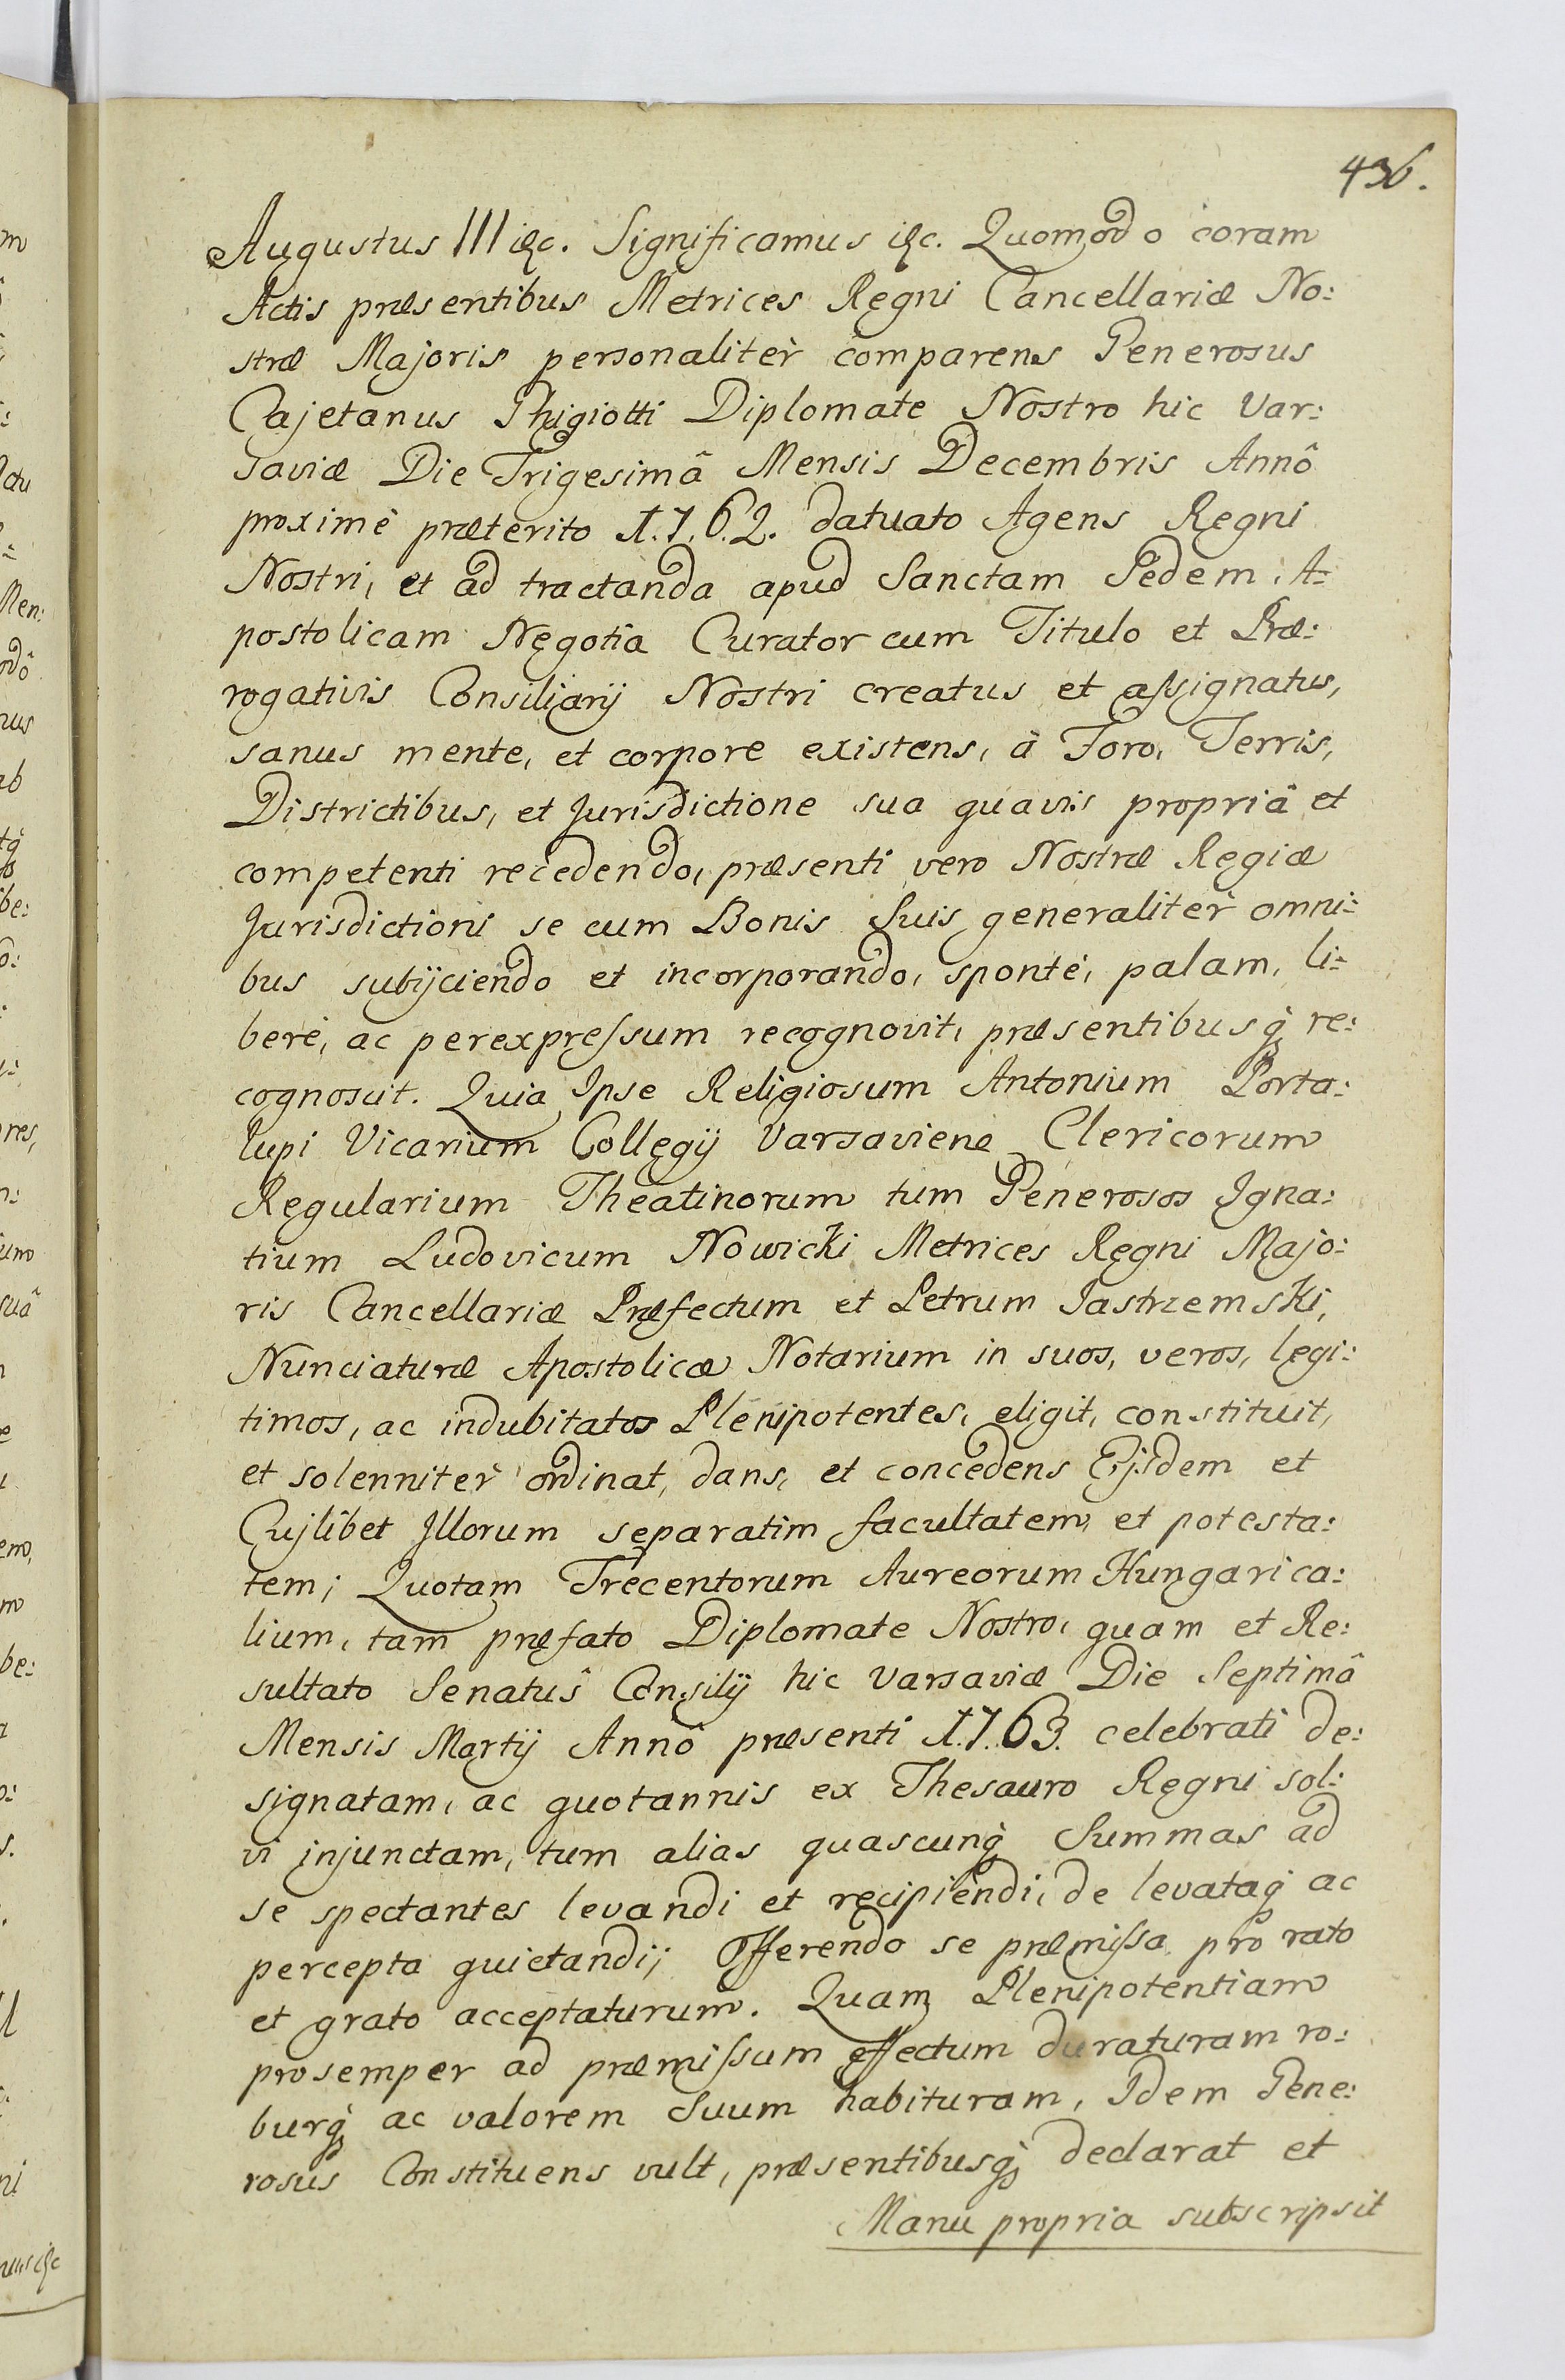 436.
Augustus III &c. Significamus &c. Quomodo coram
Actis præsentibus Metrices Regni Cancellariæ No:
stræ Majoris personalitèr comparens Generosus
Cajetanus Ghigiotti Diplomate Nostro hic Var:
saviæ Die Trigesimâ Mensis Decembris Annô
proximè præterito 1.7.6.2. datuato Agens Regni
Nostri, et ad tractanda apud Sanctam Sedem A:
postolicam Negotia Curator cum Titulo et Præ:
rogativis Consiliarij Nostri creatus et aſsignatus,
sanus mente, et corpore existens, à Foro, Terris,
Districtibus, et Jurisdictione sua quavis propriâ et
competenti recedendo, præsenti vero Nostræ Regiæ
Jurisdictioni se cum Bonis Suis generalitèr omni:
bus subijciendo et incorporando, spontè, palam, li:
berè, ac perexpreſsum recognovit, præsentibusq́ re:
cognoscit. Quia Ipse Religiosum Antonium Porta:
lupi Vicarium Collegij Varsaviene Clericorum
Regularium Theatinorum tum Generosos Igna:
tium Ludovicum Nowicki Metrices Regni Majo:
ris Cancellariæ Præfectum et Petrum Jastrzemski,
Nunciaturæ Apostolicæ Notarium in suos, veros, legi:
timos, ac indubitatos Plenipotentes, eligit, constituit,
et solennitèr ordinat, dans, et concedens Eijsdem et
Cujlibet Illorum separatim facultatem, et potesta:
tem; Quotam Trecentorum Aureorum Hungarica:
lium, tam præfato Diplomate Nostro, quam et Re:
sultato Senatûs Consilij hic Varsaviæ Die Septimâ
Mensis Martij Annô præsenti 1.7.63. celebrati de:
signatam, ac quotannis ex Thesauro Regni sol:
vi injunctam, tum alias quascunq́ Summas ad
se spectantes levandi et recipiendi, de levataq́ ac
percepta quietandi; Offerendo se præmiſsa pro rato
et grato acceptaturum. Quam Plenipotentiam
prosemper ad præmiſsum effectum duraturam ro:
burq́ ac valorem Suum habituram, Idem Gene:
rosus Constituens vult, præsentibusq́ declarat et
Manu propria subscripsit